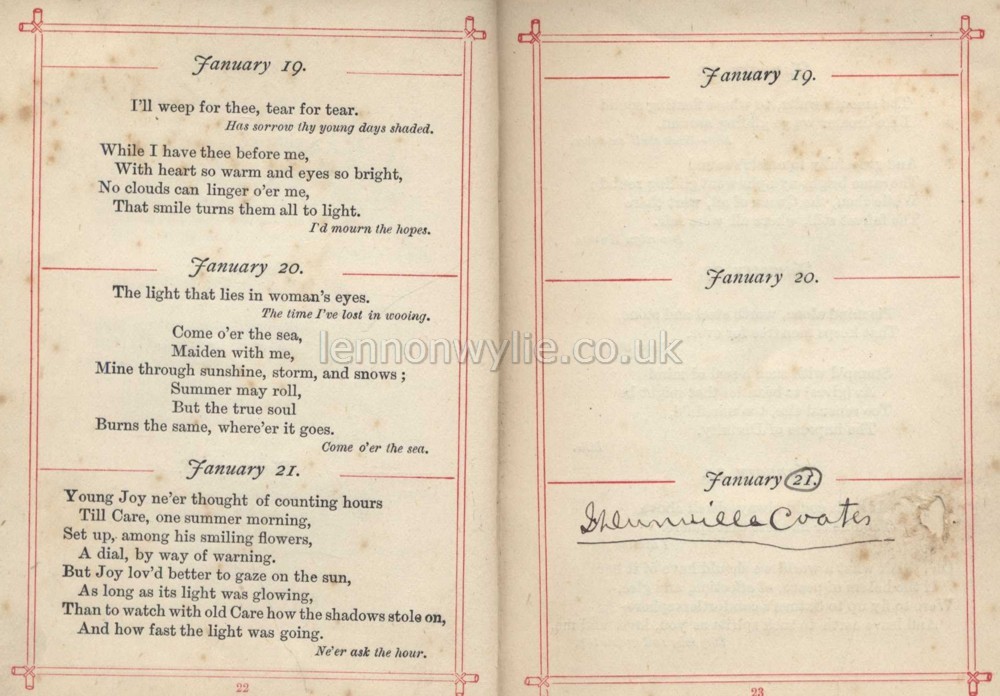 January 19.
I'll weep for thee, tear for tear.
Has sorrow thy young days shaded.
While I have thee before me,
With heart so warm and eyes so bright,
No clouds can linger o'er me,
That smile turns them all to light.
I'd mourn the hopes.
January 20.
The light that lies in woman's eyes.
The time I've lost in wooing.
Come o'er the sea,
Maiden with me,
Mine through sunshine, storm, and snows;
Summer may roll,
But the true soul
Burns the same, where'er it goes.
Come o'er the sea.
January 21.
Young Joy ne'er thought of counting hours
Till Care, one summer morning,
Set up, among his smiling flowers,
A dial, by way of warning.
But Joy lov'd better to gaze on the sun,
As long as its light was glowing,
Than to watch with old Care how the shadows stole on,
And how fast the light was going.
Ne'er ask the hour.
22
January 19.
January 20.
January 21.
Coates
23
lennonwylie.co.uk